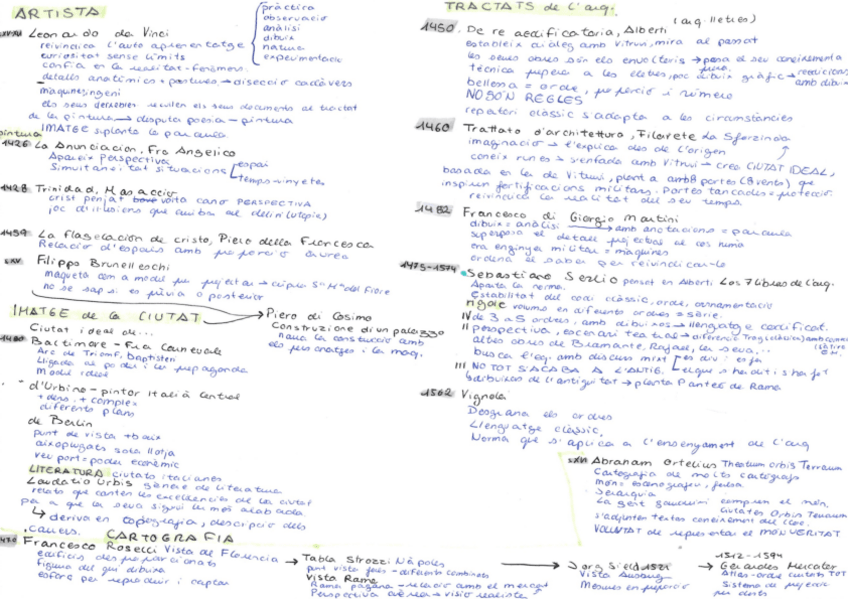 ARTISTA
pràctica
observació
anàlisi
dibuix
natura
experimentació
XV-XVI Leonardo da Vinci
reivindica l'auto aprenentatge
curiositat sense límits
confia en la realitat - fenòmens
detalls anatòmics + postures → disecció cadàvers
maquines, ingeni
els seus deixebles recullen els seus documents al tractat
de la pintura → disputa poesia - pintura
IMATGE suplanta la paraula
pintura
1426 La Anunciación, Fra Angelico
Apareix perspectiva
Simultaneïtat situacions
espai
temps-vinyetes
1428 Trinidad, Masaccio
crist penjat volta canó PERSPECTIVA
joc d'il·lusions que arriba al deliri (utopia)
1459 La flagelación de cristo, Piero della Francesca
Relació d'espais amb proporció àurea
XV Filippo Brunelleschi
maqueta com a model per projectar → cúpula Sta Mª del Fiore
no se sap si és prèvia o posterior
IMATGE de la CIUTAT
Piero di Cosimo
Construzione di un palazzo
els personatges i la maq.
Ciutat ideal de...
1480 Baltimore - Fra Carnevale
Arc de Triomf, baptisteri
Lligada al poder i les propaganda
Model ideal
" d'Urbino - pintor Italià Central
+ dens, + complex
diferents plans
de Berlin
punt de vista + baix
aixoplugats sota llotja
veu port = poder econòmic
LITERATURA ciutats italianes
Laudatio Urbis gènere de literatura
relats que canten les excel·lències de la ciutat
per a que la seva sigui la més alabada
↳ deriva en topografia, descripció dels
carrers.
CARTOGRAFIA
Francesco Roselli Vista de Florencia
edificis desproporcionats
figura del qui dibuixa
esforç per reproduir i captar
→ Tabla Strozzi Nàpols
punt vista fals - diferents combinats
Vista Roma
Roma pagana - relació amb el mercat
Perspectiva aèrea → visió realista
→ Jorg Sield 1521
Vista Ausburg
Mesures en proporció
1512-1594
→ Gerardus Mercator
Atlas - ordre ciutats TOT
Sistema de projecció
TRACTATS de l'arq.
(arq. lletres)
1450 De re aedificatoria, Alberti
Estableix diàleg amb Vitruvi, mira al passat
les seves obres són els envoltoris → posa el seu coneixement a
tècnica propera a les lletres, poc dibuix gràfic →
bellesa = ordre, proporció i número
NO SÓN REGLES
repatori clàssic s'adapta a les circumstàncies
1460 Trattato d'architettura, Filarete La Sforzinda
imaginació → l'explica des de l'origen
coneix runes → s'enfada amb Vitruvi → crea CIUTAT IDEAL,
basada en la de Vitruvi, planta amb 8 portes (8 vents) que
inspiren fortificacions militars. Portes tancades = protecció.
reivindica la realitat del seu temps.
1482 Francesco di Giorgio Martini
dibuix = anàlisi → amb anotacions = paraula
superposa el detall projectual al cos humà
era enginyer militar = màquines
ordena el saber per reivindicar-lo
1475-1574 Sebastiano Serlio pensat en Alberti Los 7 libros de l'arq.
Aporta la norma.
Estabilitat del codi clàssic, ordre, ornamentació
volums en diferents ordres = sèrie.
IV de 3 a 5 ordres, amb dibuixos → llenguatge codificat.
II perspectiva, escenari teatral → diferència
altres obres de Bramante, Rafael, la seva...
busca l'eq. amb discurs mixt
III NO TOT S'ACABA A L'ANTIG.
dibuixos de l'antiguitat → planta Panteó de Roma
1562 Vignola
Desgrana els ordres
Llenguatge clàssic,
Norma que s'aplica a l'ensenyament de l'arq
XVI Abraham Ortelius Theatrum orbis Terrarum
Cartografia de molts cartògrafs
Món = escenogràfic, farsa
Jerarquia
La gent comprem el món.
Civitates Orbis Terrarum
s'adjunten textos coneixement del lloc.
VOLUNTAT de representar el MÓN VERITAT